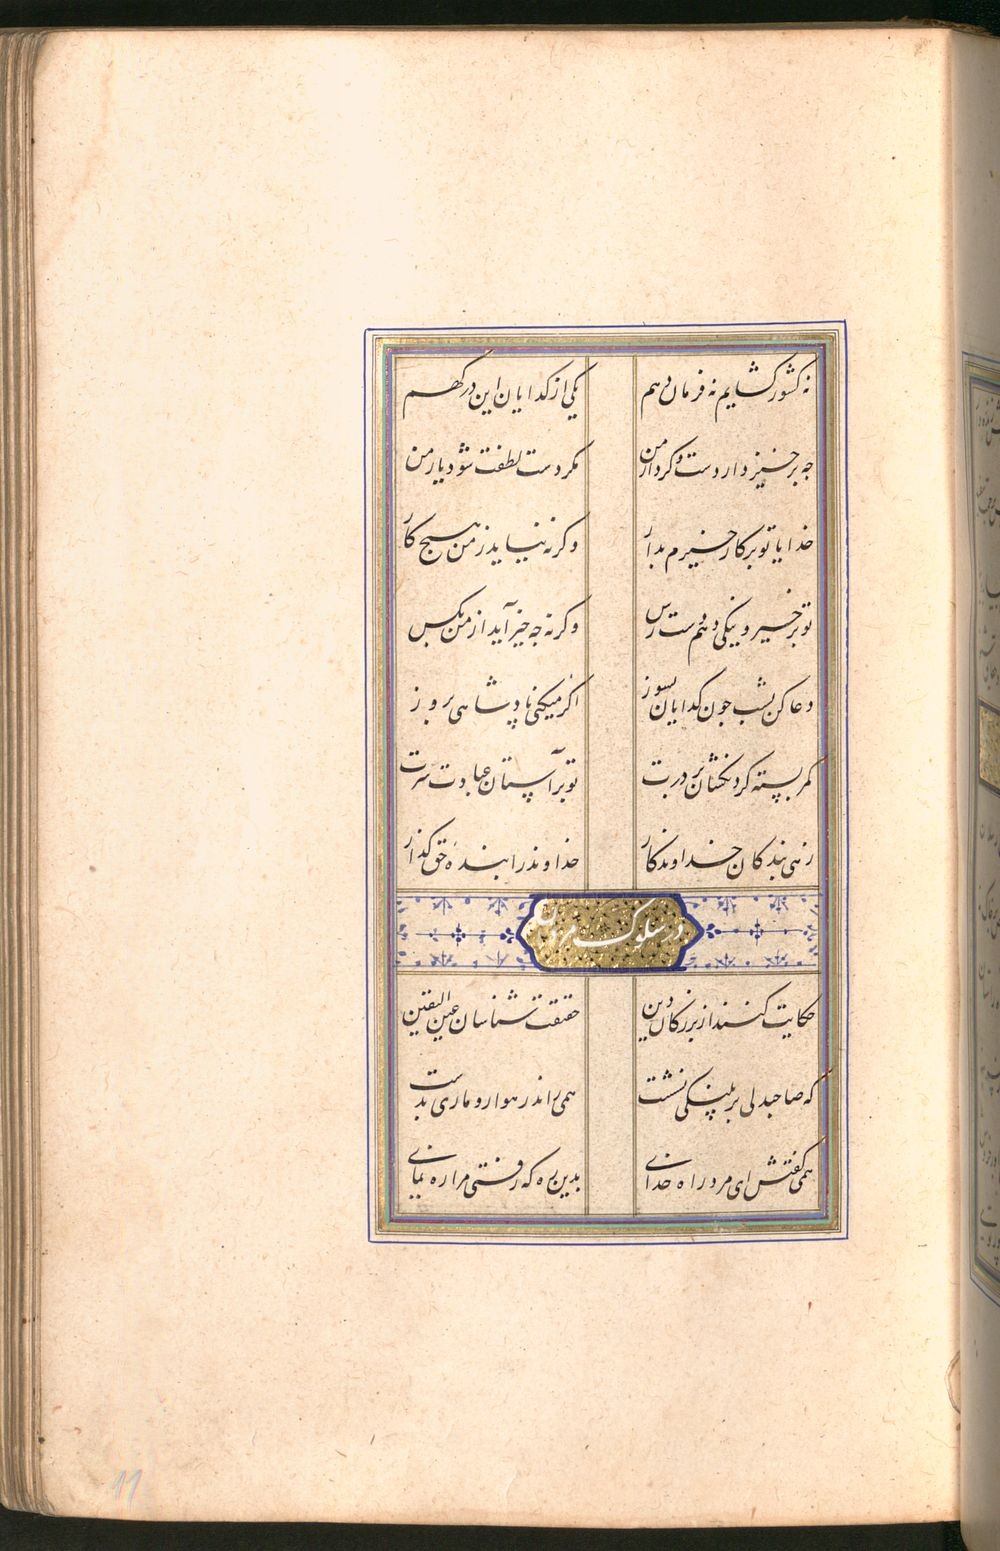 نه کشور کشایم نه فرمان دهم یکی از کدایان این درکهم
چه برخیزد از دست و کردار من مکر دست لطفت شود یار من
خدایا تو بر کار خیرم بدار وکرنه نیاید ز من هیچ کار
تو بر خیر و نیکی دهم دست رس وکرنه چه خیر آید از من بکس
دعا کن بشب چون کدایان بسوز اکر میکنی پادشاهی بروز
کمر بسته کردنکشان بر درت تو بر آستان عبادت سرت
زهی بندکان خداوندکار خداوند را بندهٔ حق کذار
در سلوک مردان
حکایت کنند از بزرکان دین حقیقت شناسان عین الیقین
که صاحبدلی بر پلنکی نشست همی راند رهوار و ماری بدست
همی کفتش ای مرد راه خدای بدین ره که رفتی مرا ره نمای
11